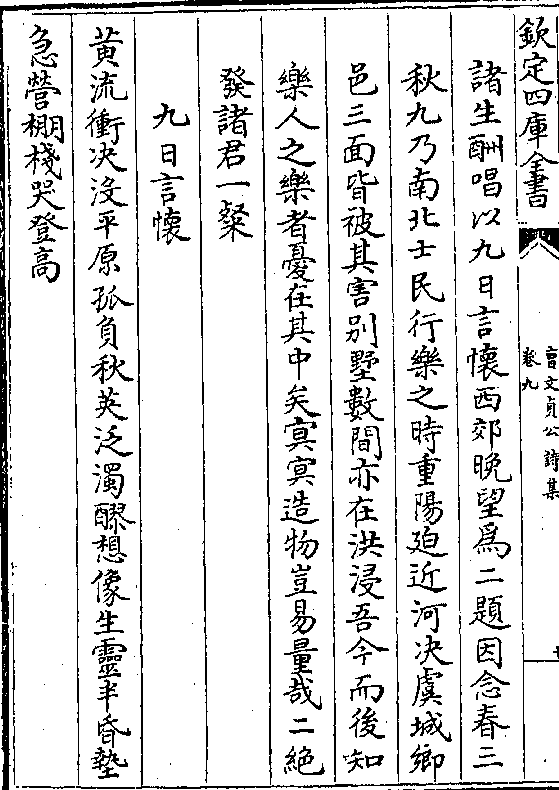 欽定四庫全書
曹文貞公詩集
卷九
諸生酬唱以九日言懷西郊晚望為二題因念春三
秋九乃南北士民行樂之時重陽廹近河決虞城鄉
邑三面皆被其害别墅數間亦在洪浸吾今而後知
樂人之樂者憂在其中矣㝠㝠造物豈易量哉二絶
發諸君一粲
九日言懷
黄流衝决没平原孤負秋英泛濁醪想像生靈半昏墊
急營棚棧哭登高